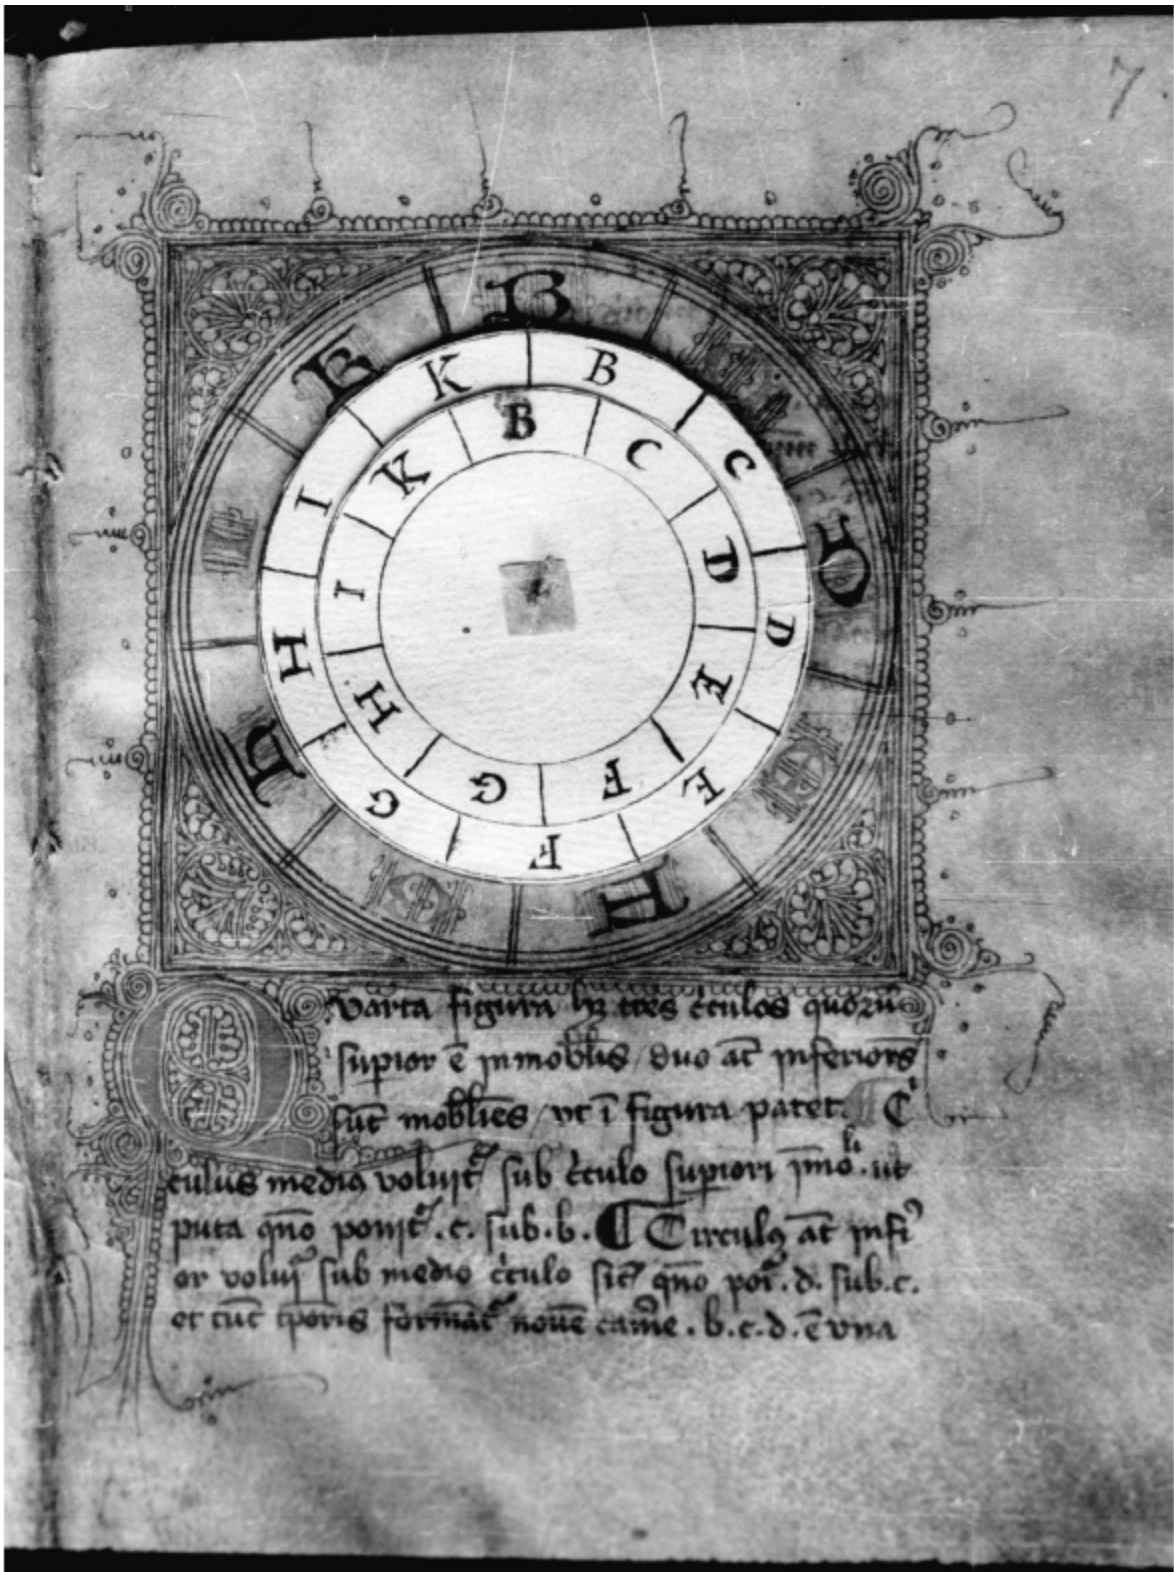 7
B
B
C
D
E
F
G
H
I
K
B
C
D
E
F
G
H
I
K
D
F
H
K
Quarta figura hȝ tres c̓culos quorũ
supior ē inmobl̄is / duo at̄ inferiors
sūt mobl̄ies / vt ī figura patet. C̓
culus medi9 voluit᷑ sub c̓culo supiori īmo.li ut
puta qn̄o ponit᷑ .c. sub .b. ¶ Circul9 at̄ infi9
or voluit᷑ sub medio c̓culo sic̄ qn̄o poı᷑ .d. sub .c.
et tūc tp̄oris format᷑ nouē cam̄e . b.c.d. ē vna